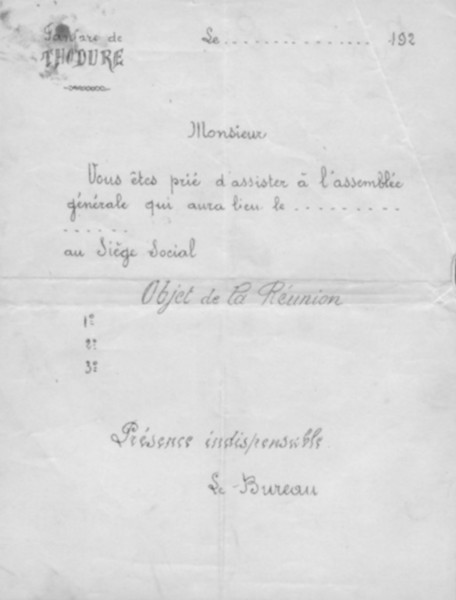 Fanfare de
THODURE
Le ............... 192
Monsieur
Vous êtes prié d'assister à l'assemblée
générale qui aura lieu le .........
......
au Siège Social
Objet de la Réunion
1º
2º
3º
Présence indispensable
Le Bureau